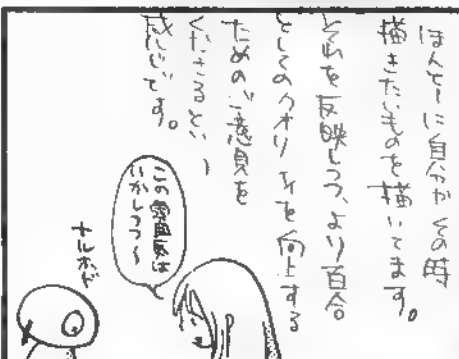 ほんとーに自分がその時
描きたいものを描いてます。
それを反映しつつ、より百合
としてのクオリティを向上する
ためのご意見を
くださるとい〜
感じです。
この雰囲気は
いかしつつ〜
ナルホド